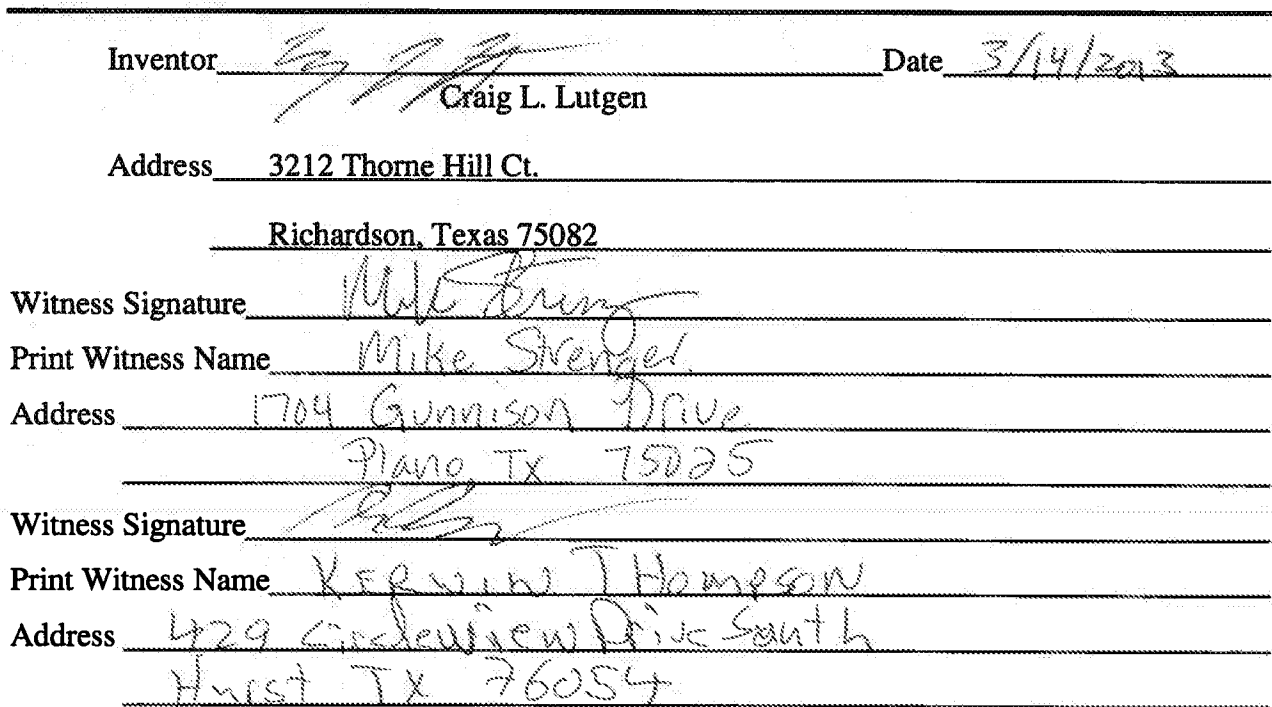 Inventor Date 3/14/2013
Craig L. Lutgen
Address 3212 Thorne Hill Ct.
Richardson, Texas 75082
Witness Signature
Print Witness Name Mike Strenger
Address 1704 Gunnison Drive
Plano, Tx 75025
Witness Signature
Print Witness Name KERWIN THOMPSON
Address 429 Circleview Drive South
Hurst TX 76054